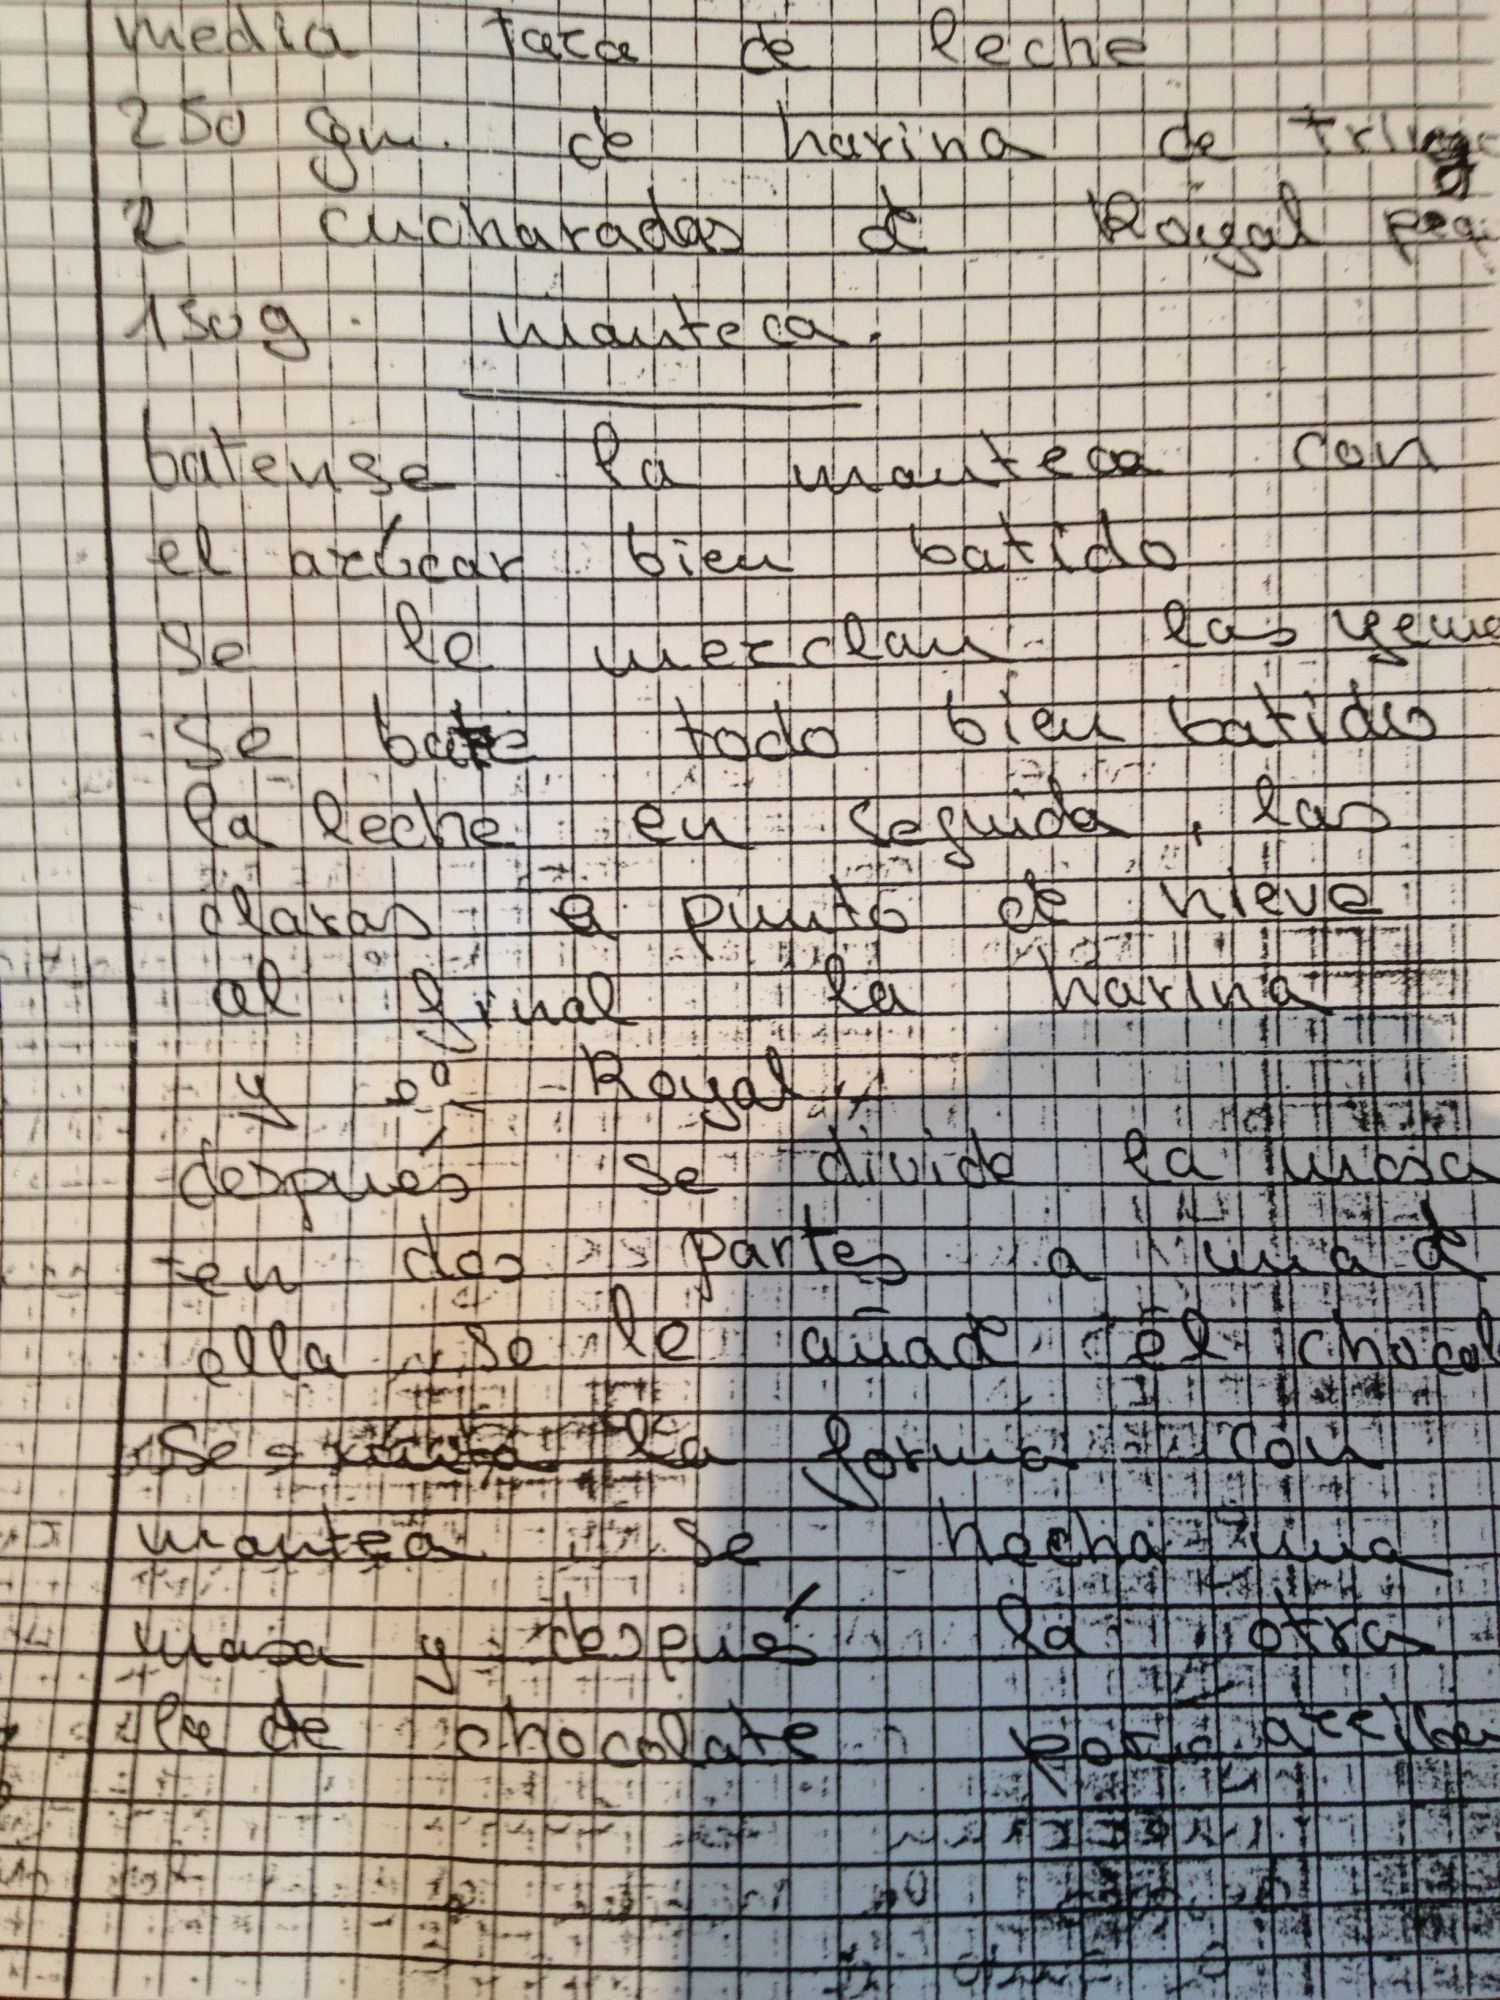 media taza de leche
250 gm. de harina de trigo
2 cucharadas de Royal peq
150g. manteca.
batense la manteca con
el azúcar bien batido
se le mezclan las yema
se bate todo bien batido
la leche en seguida, las
claras a punto de nieve
al final la harina
y el Royal
después se divide la masa
en dos partes a una de
ella se le añade el chocol
se unta la forma con
manteca se hecha una
masa y después la otras
la de chocolate por arriba